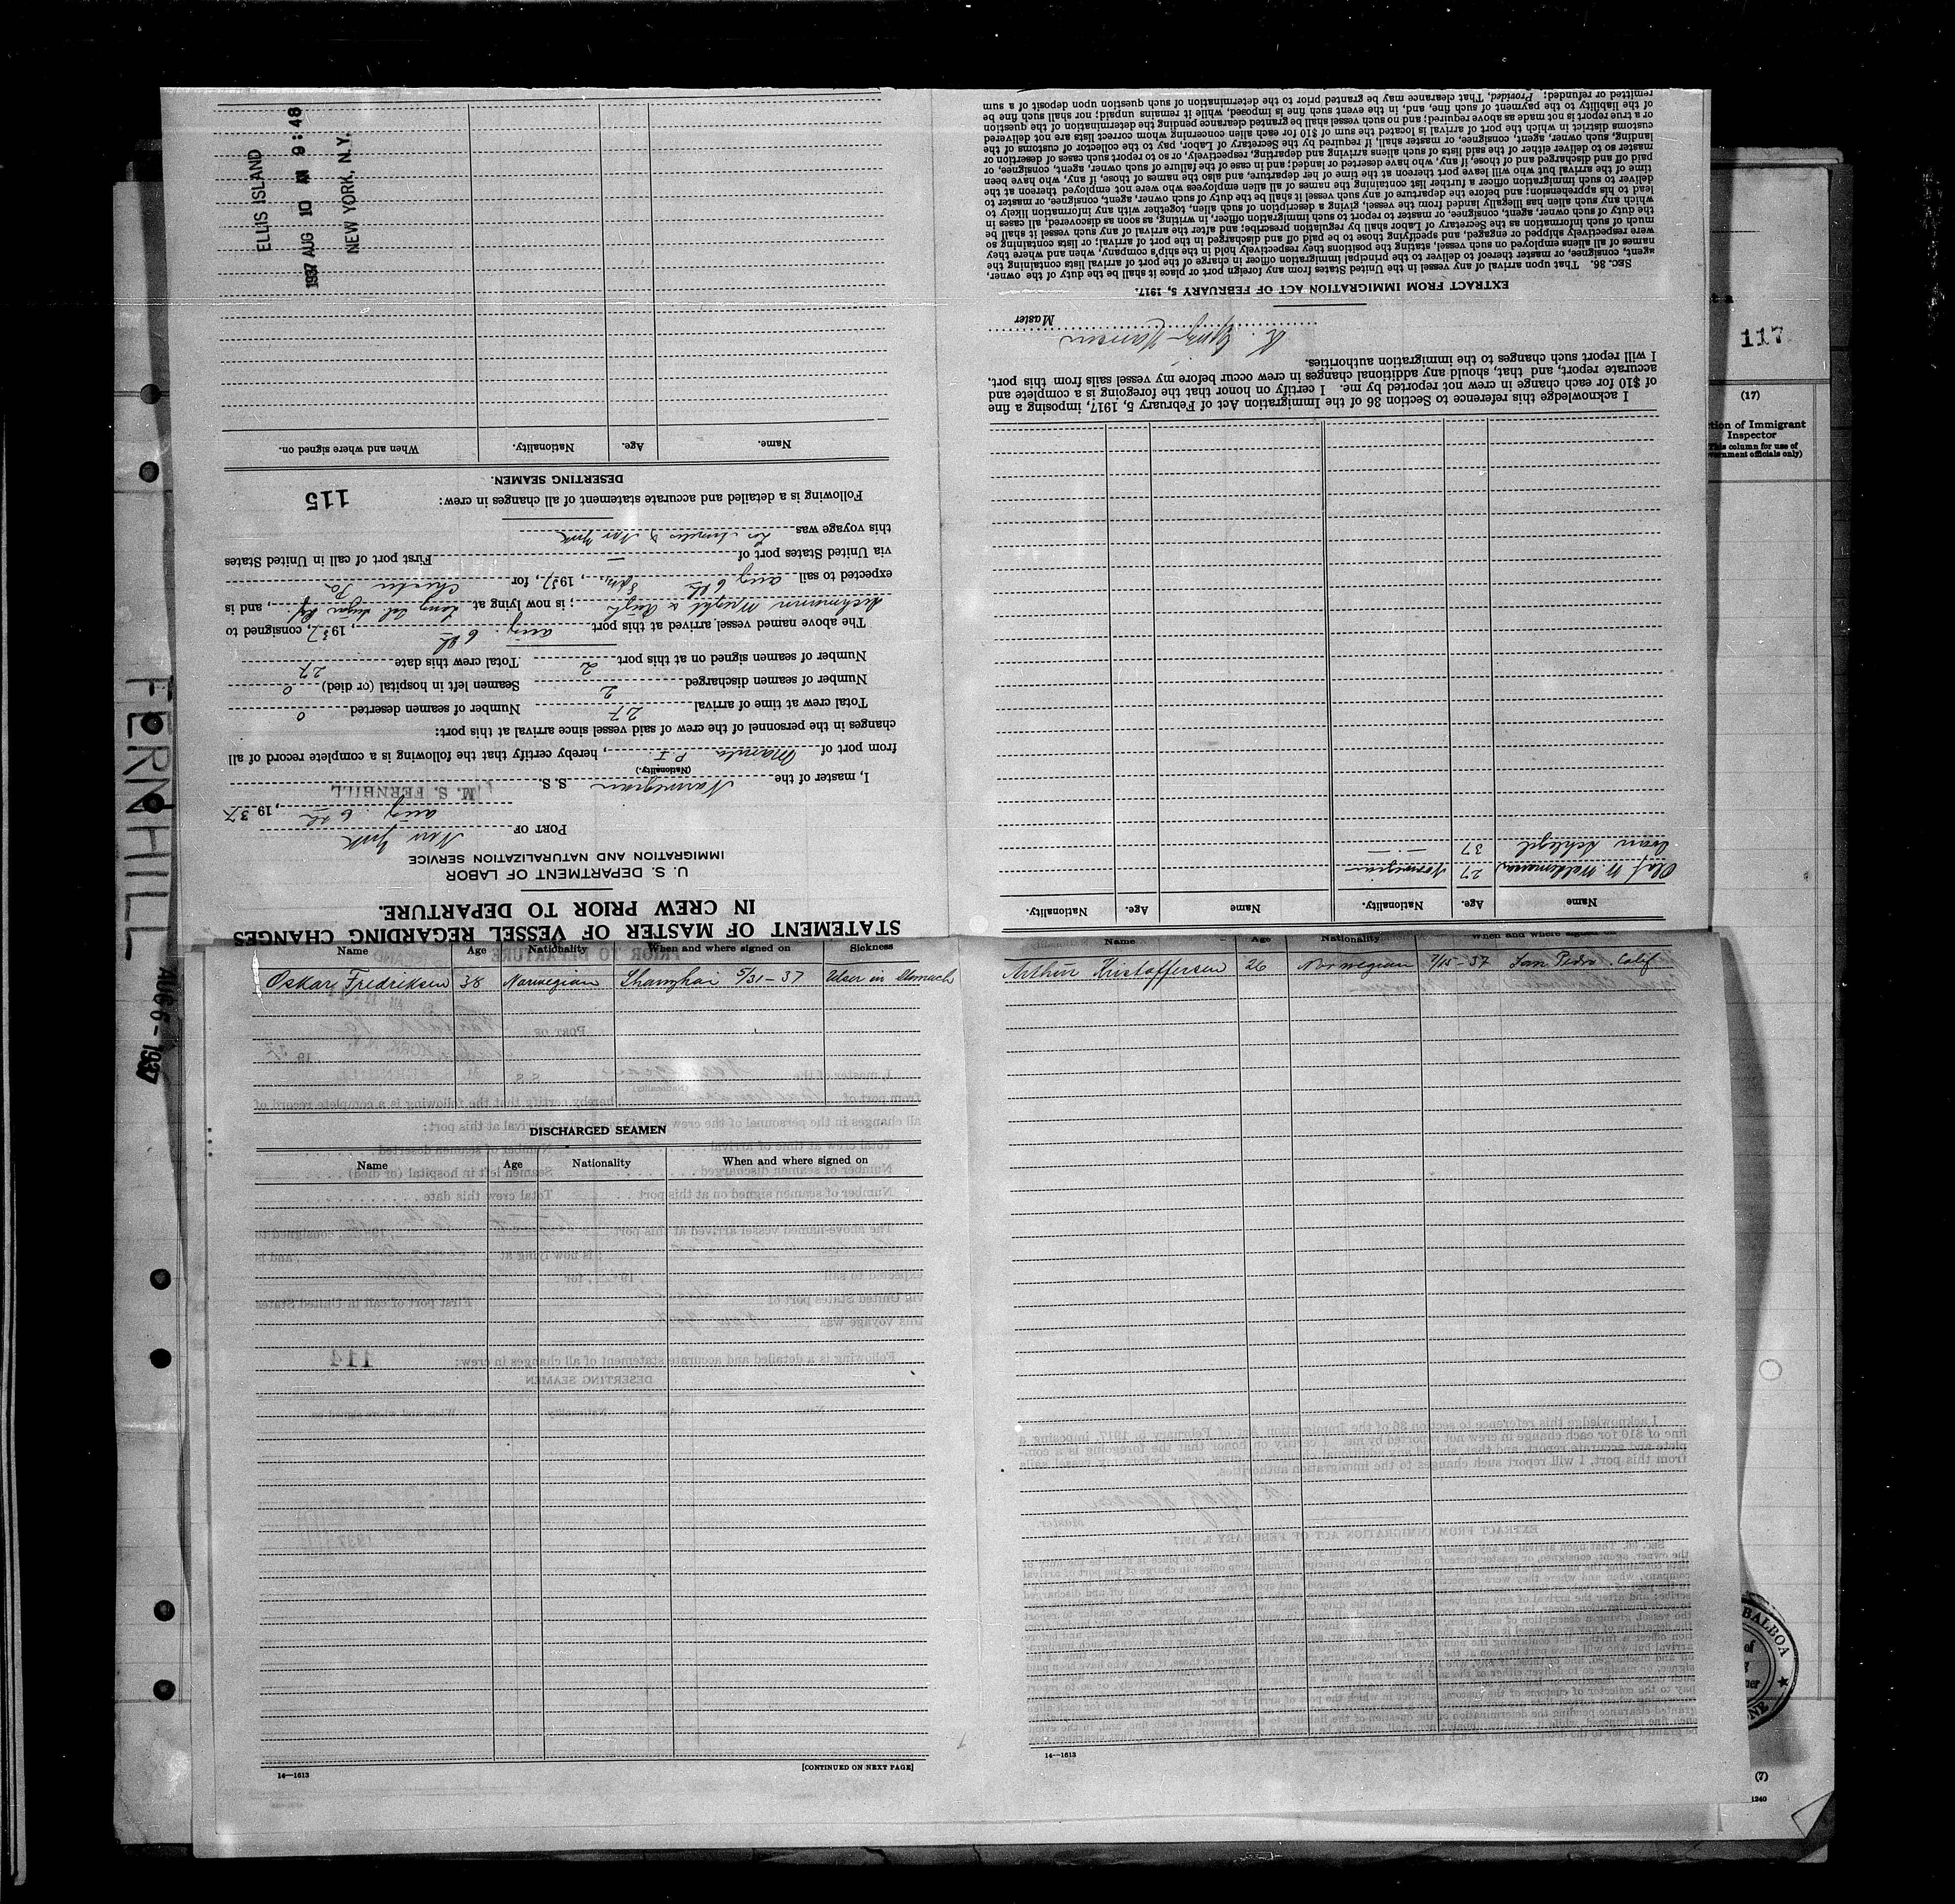 STATEMENT OF MASTER OF VESSEL REGARDING CHANGES
IN CREW PRIOR TO DEPARTURE.
U. S. DEPARTMENT OF LABOR
IMMIGRATION AND NATURALIZATION SERVICE
PORT OF New York
Aug. 6th, 1937
I, master of the Norwegian S. S. M. S. FERNHILL
(Nationality.)
from port of Manila P. I., hereby certify that the following is a complete record of all
changes in the personnel of the crew of said vessel since arrival at this port:
Total crew at time of arrival 27 Number of seamen deserted 0
Number of seamen discharged 2 Seamen left in hospital (or died) 0
Number of seamen signed on at this port 2 Total crew this date 27
The above named vessel arrived at this port Aug. 6th, 1937, consigned to
; is now lying at, and is
expected to sail Aug 6th, 1937, for Chester Pa
via United States port of — First port of call in United States
this voyage was Los Angeles & New York
Following is a detailed and accurate statement of all changes in crew:
115
DESERTING SEAMEN.
Name. Age. Nationality. When and where signed on.
ELLIS ISLAND
1937 AUG 10 AM 9:48
NEW YORK, N. Y.
Name Age. Nationality. Name Age. Nationality.
Olaf W. 27 Norwegian
37 — —
I acknowledge this reference to Section 36 of the Immigration Act of February 5, 1917, imposing a fine
of $10 for each change in crew not reported by me. I certify on honor that the foregoing is a complete and
accurate report, and that, should any additional changes in crew occur before my vessel sails from this port,
I will report such changes to the immigration authorities.
Master
EXTRACT FROM IMMIGRATION ACT OF FEBRUARY 5, 1917.
SEC. 36. That upon arrival of any vessel in the United States from any foreign port or place it shall be the duty of the owner,
agent, consignee, or master thereof to deliver to the principal immigration officer in charge of the port of arrival lists containing the
names of all aliens employed on such vessel, stating the positions they respectively hold in the ship's company, when and where they
were respectively shipped or engaged, and specifying those to be paid off and discharged in the port of arrival; or lists containing so
much of such information as the Secretary of Labor shall by regulation prescribe; and after the arrival of any such vessel it shall be
the duty of such owner, agent, consignee, or master to report to such immigration officer, in writing, as soon as discovered, all cases in
which any such alien has illegally landed from the vessel, giving a description of such alien, together with any information likely to
lead to his apprehension; and before the departure of any such vessel it shall be the duty of such owner, agent, consignee, or master to
deliver to such immigration officer a further list containing the names of all alien employees who were not employed thereon at the
time of the arrival but who will leave port thereon at the time of her departure, and also the names of those, if any, who have been
paid off and discharged and of those, if any, who have deserted or landed; and in case of the failure of such owner, agent, consignee, or
master so to deliver either of the said lists of such aliens arriving and departing, respectively, or so to report such cases of desertion or
landing, such owner, agent, consignee, or master shall, if required by the Secretary of Labor, pay to the collector of customs of the
customs district in which the port of arrival is located the sum of $10 for each alien concerning whom correct lists are not delivered
or a true report is not made as above required; and no such vessel shall be granted clearance pending the determination of the question
of the liability to the payment of such fine, and, in the event such fine is imposed, while it remains unpaid; nor shall such fine be
remitted or refunded: Provided, That clearance may be granted prior to the determination of such question upon deposit of a sum
Name Age Nationality When and where signed on Sickness
Oskar Fredriksen 38 Norwegian Shanghai 5/31-37 Ulser in Stomach
DISCHARGED SEAMEN
Name Age Nationality When and where signed on
14—1613
[CONTINUED ON NEXT PAGE]
Name Age Nationality When and where signed on
Arthur Kristoffersen 26 Norwegian 7/15-37 San Pedro Calif
14—1613
FERNHILL
AUG 6-1937
117
(17)
tion of Immigrant
Inspector
(This column for use of
vernment officials only)
BALBOA
(7)
1240
114